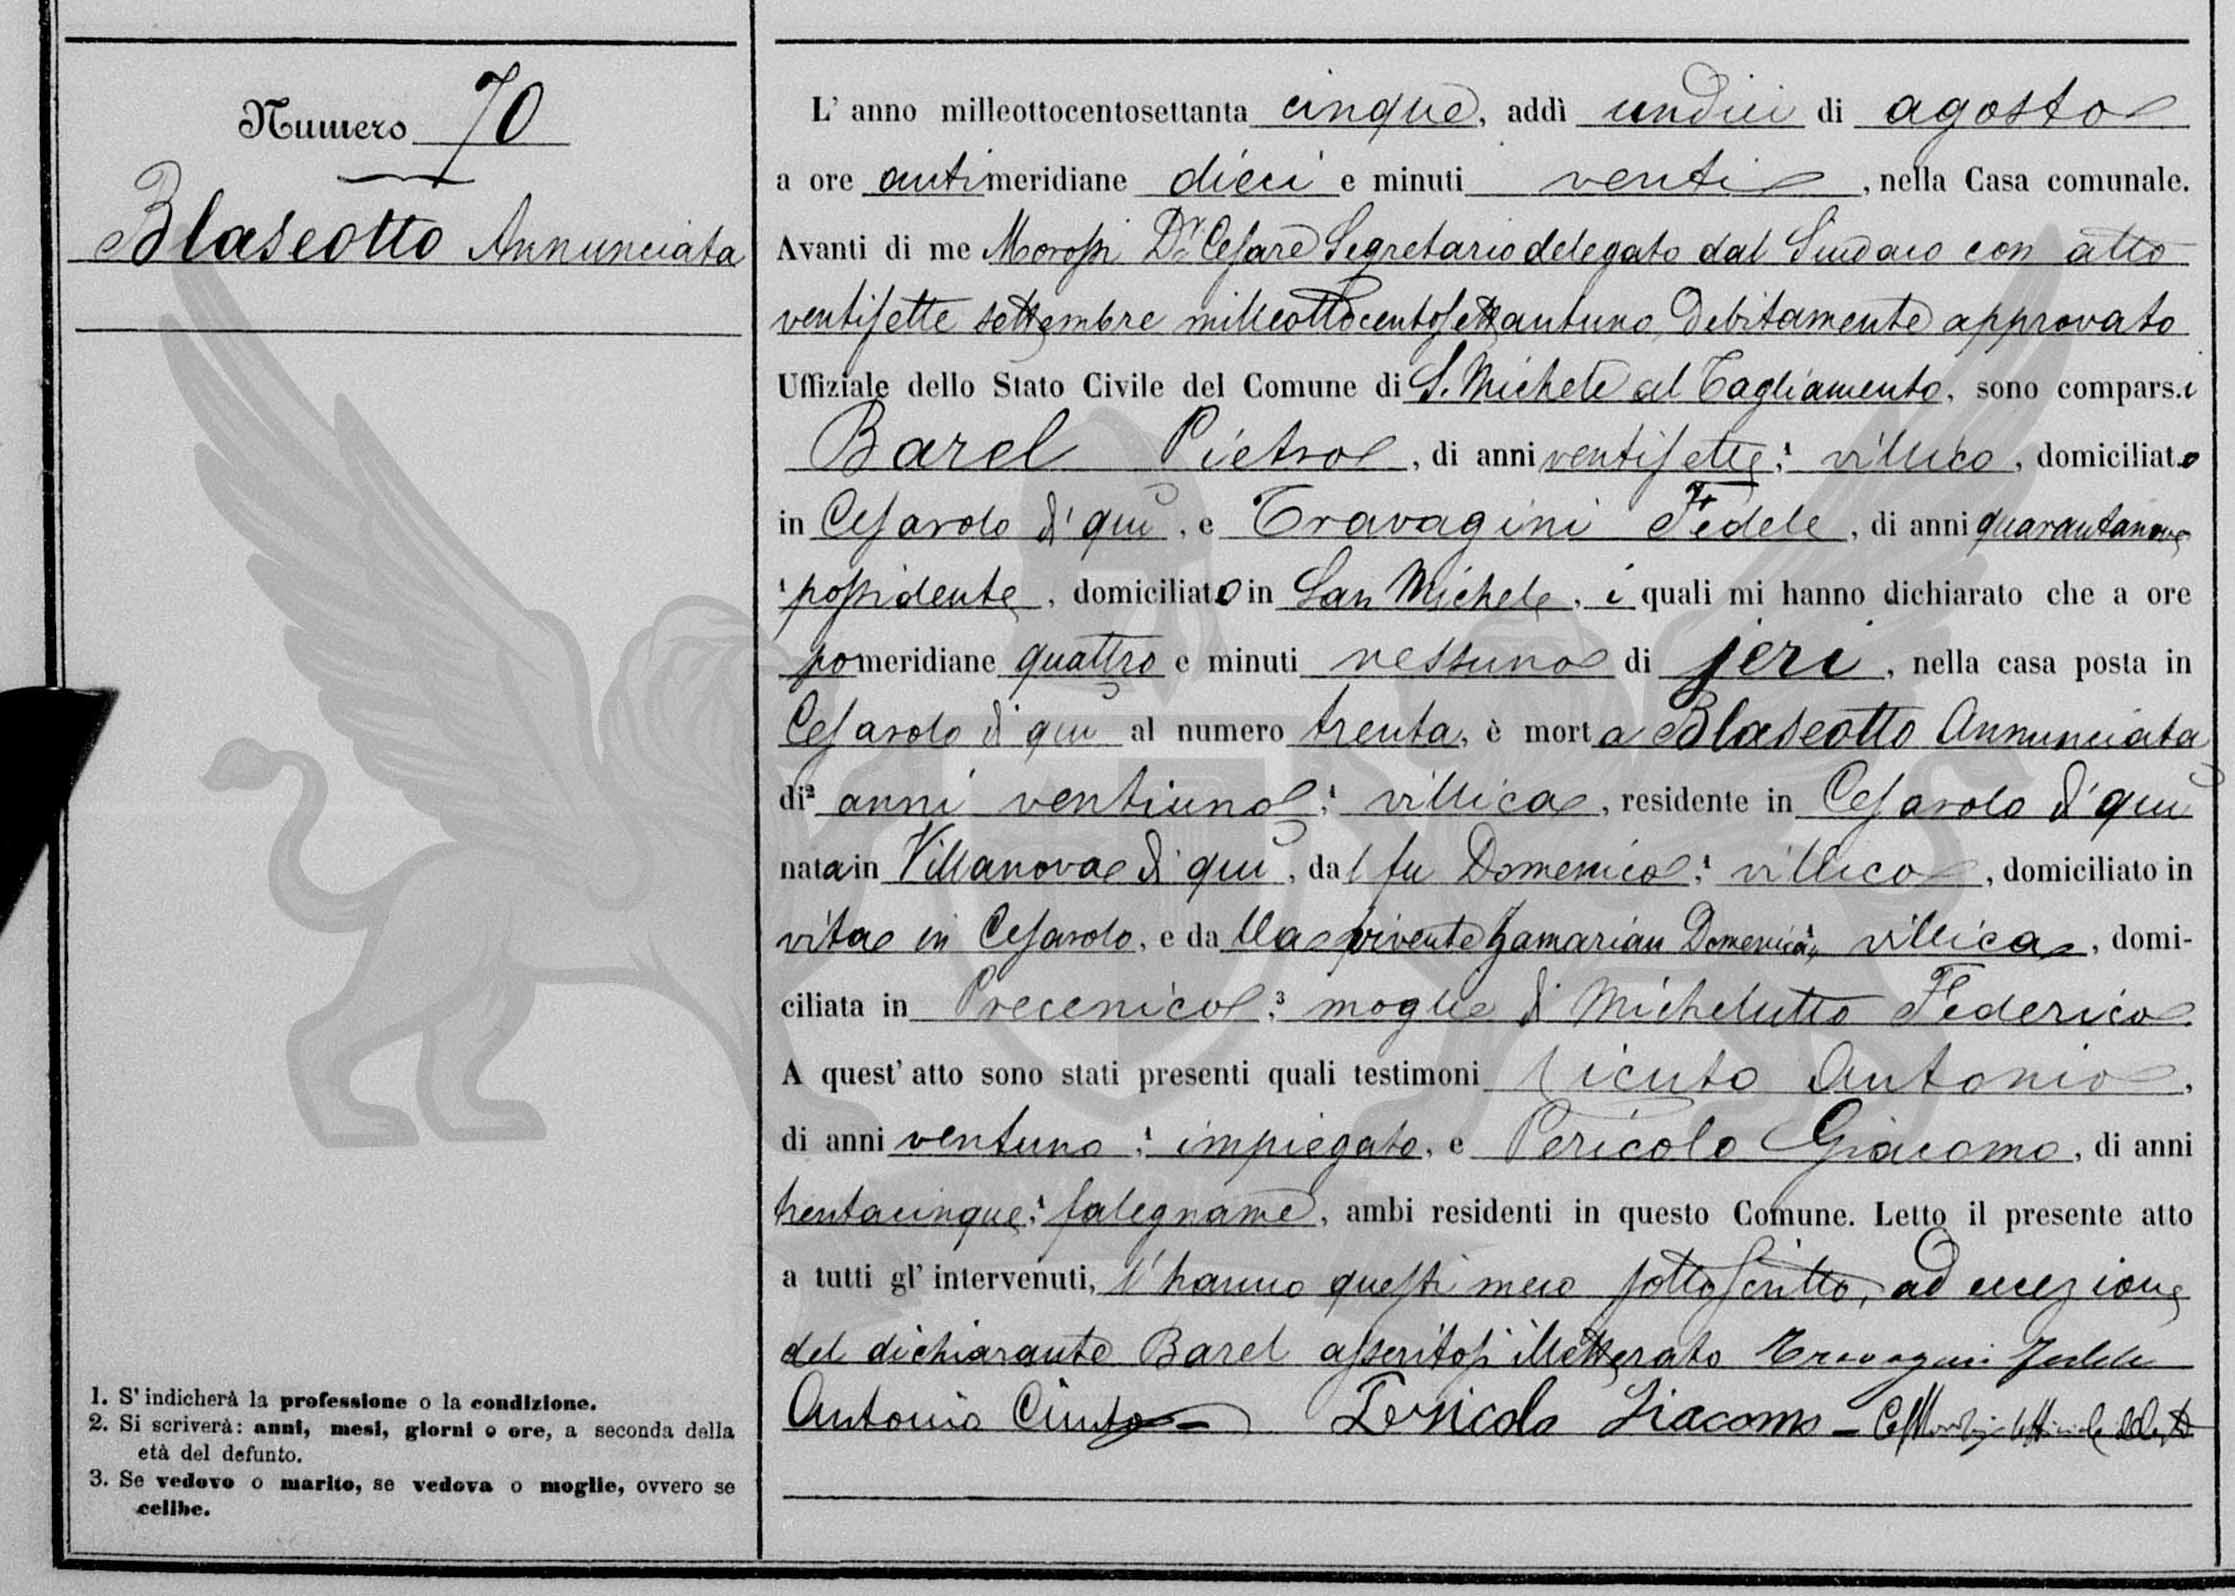 Numero 70
Blaseotto Annunciata
L' anno milleottocentosettanta cinque, addì undici di agosto
a ore antimeridiane dieci e minuti venti, nella Casa comunale.
Avanti di me Morossi Dr. Cesare Segretario delegato dal Sindaco con atto
ventisette settembre milleottocentosettantuno debitamente approvato
Uffiziale dello Stato Civile del Comune di S. Michele al Tagliamento, sono compars.i
Barel Pietro, di anni ventisette,¹ villico, domiciliato
in Cesarolo di qui, e Travagini Fedele, di anni quarantanove
¹ possidente, domiciliato in San Michele, i quali mi hanno dichiarato che a ore
pomeridiane quattro e minuti nessuno di jeri, nella casa posta in
Cesarolo di qui al numero trenta, è morta Blaseotto Annunciata
di² anni ventiuno,¹ villica, residente in Cesarolo di qui
nata in Villanova di qui, dal fu Domenico,¹ villico, domiciliato in
vita in Cesarolo, e dalla vivente Zamarian Domenica,¹ villica, domi-
ciliata in Precenico,³ moglie di Michelutto Federico
A quest' atto sono stati presenti quali testimoni Ciuto Antonio,
di anni ventuno,¹ impiegato, e Pericolo Giacomo, di anni
trentacinque,¹ falegname, ambi residenti in questo Comune. Letto il presente atto
a tutti gl' intervenuti, l'hanno questi meco sottoscritto, ad eccezione
del dichiarante Barel asseritosi illetterato Travagini Fedele
Antonio Ciuto - Pericolo Giacomo -
1. S' indicherà la professione o la condizione.
2. Si scriverà: anni, mesi, giorni o ore, a seconda della
età del defunto.
3. Se vedovo o marito, se vedova o moglie, ovvero se
celibe.